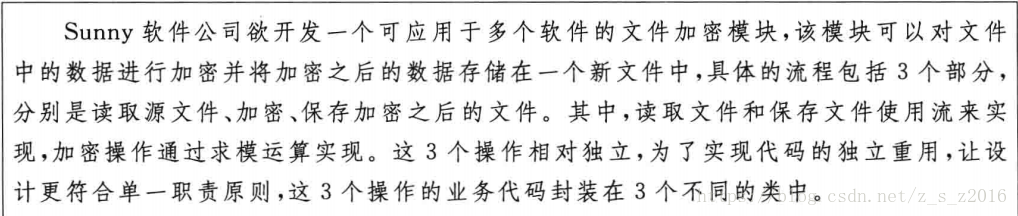 Sunny 软件公司欲开发一个可应用于多个软件的文件加密模块,该模块可以对文件
中的数据进行加密并将加密之后的数据存储在一个新文件中,具体的流程包括 3 个部分,
分别是读取源文件、加密、保存加密之后的文件。其中,读取文件和保存文件使用流来实
现,加密操作通过求模运算实现。这 3 个操作相对独立,为了实现代码的独立重用,让设
计更符合单一职责原则,这 3 个操作的业务代码封装在 3 个不同的类中。
https://blog.csdn.net/z_s_z2016